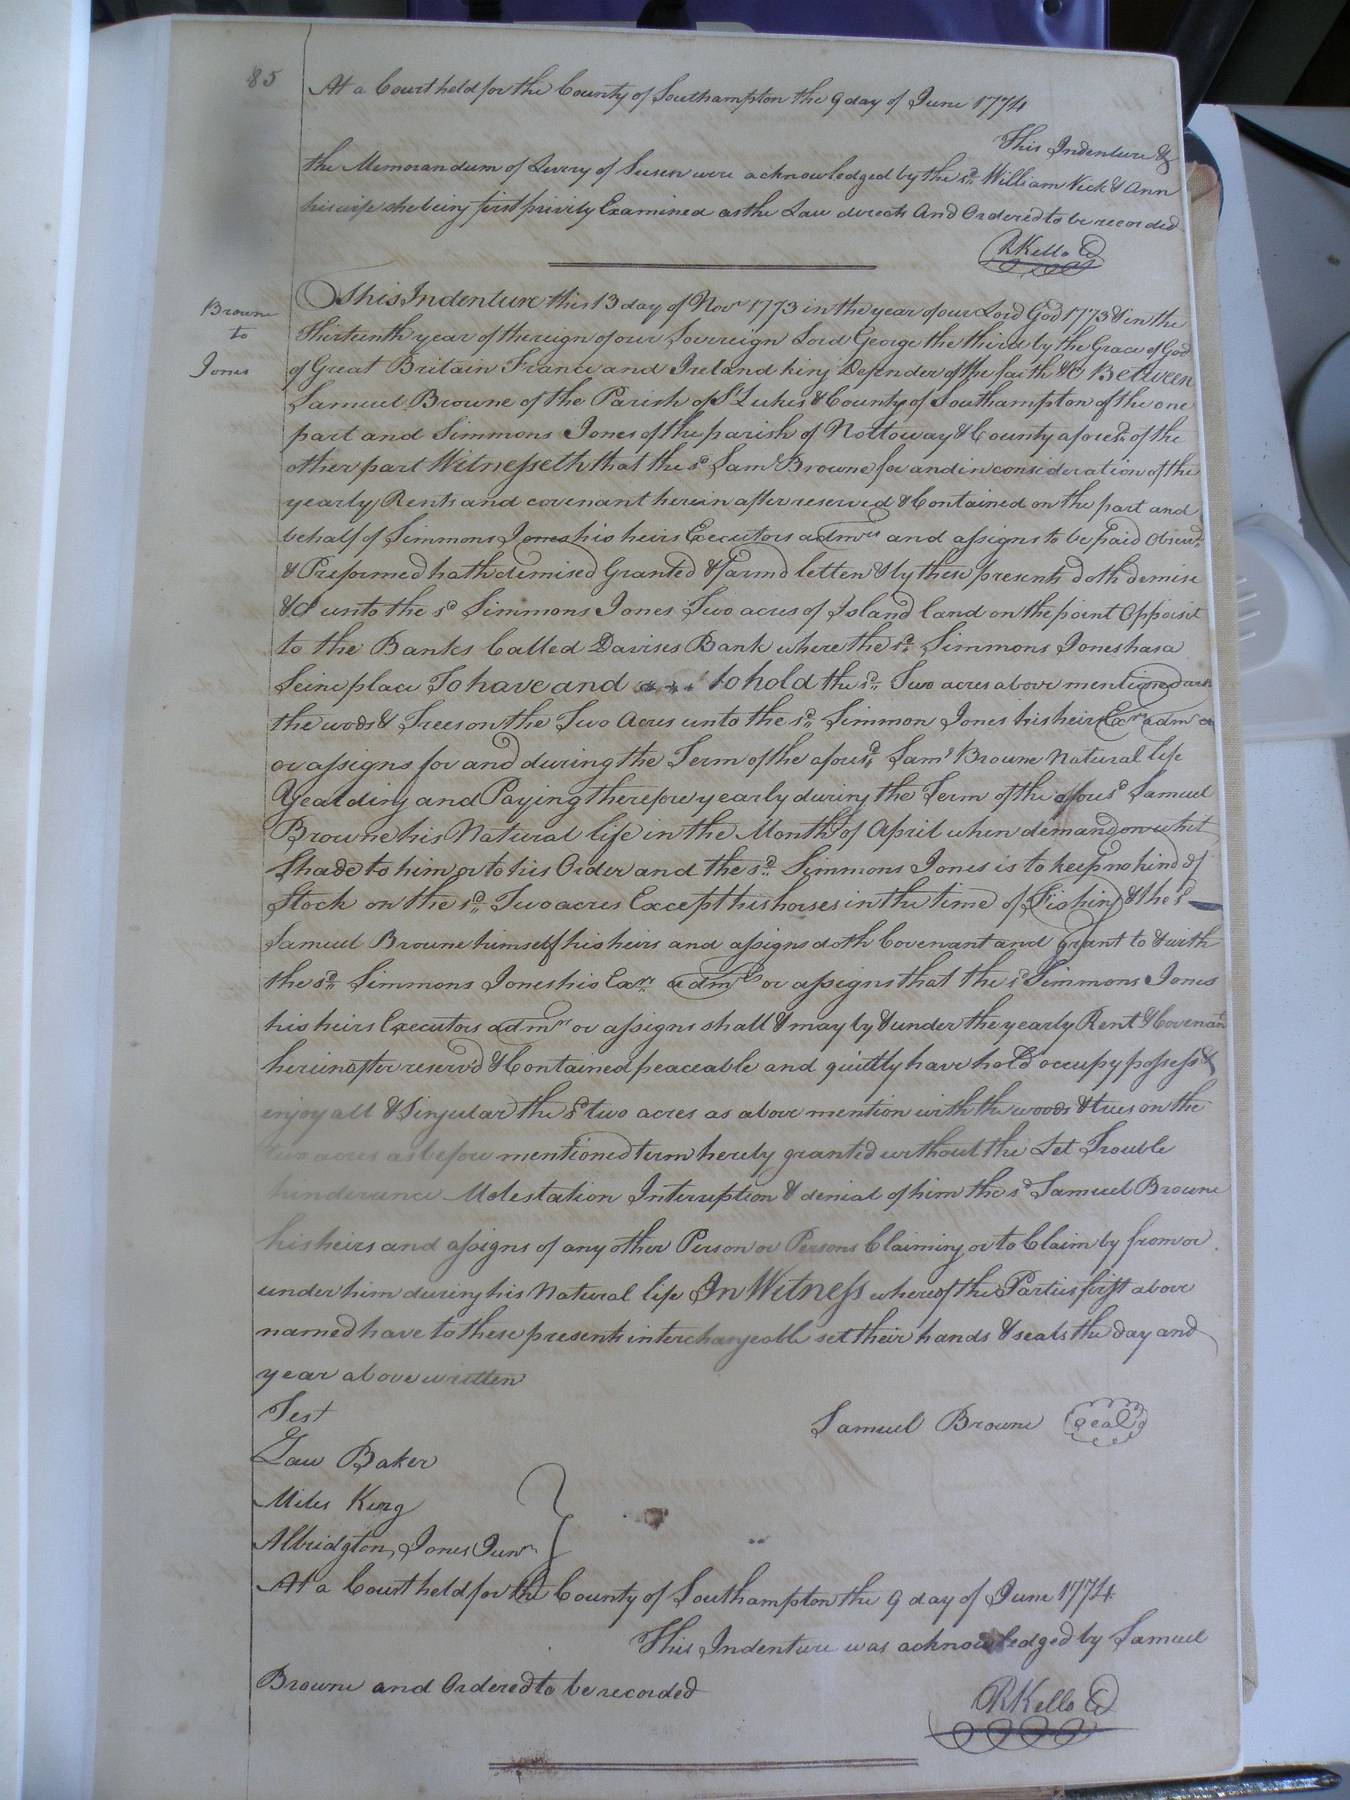 85
At a Court held for the County of Southampton the 9 day of June 1774
This Indenture &
the Memorandum of Livery of Seisen were acknowledged by the sd. William Vick & Ann
his wife she being first privily Examined as the Law directs And Ordered to be recorded
RKello
Browne
to
Jones
This Indenture this 13 day of Novr 1773 in the year of our Lord God 1773 & in the
Thirteenth year of the reign of our Sovereign Lord George the third by the Grace of God
of Great Britain France and Ireland king Defender of the faith &c Between
Samuel Browne of the Parish of St Lukes & County of Southampton of the one
part and Simmons Jones of the parish of Nottoway & County aforesd. of the
other part Witnesseth that the sd Saml Browne for and in consideration of the
yearly Rents and covenant herein after reserved & Contained on the part and
behalf of Simmons Jones his heirs Executors admrs and assigns to be paid
& Preformed hath demised Granted & farmd letten & by these presents doth demise
&c unto the sd Simmons Jones Two acres of Island land on the point Opposit
to the Banks Called Davises Bank where the sd. Simmons Jones has a
Seine place To have and to hold the sd. Two acres above mentioned and
the woods & Trees on the Two Acres unto the sd. Simmon Jones his heirs Exrs adm
or assigns for and during the Term of the aforesd. Saml Browne Natural life
Yealding and Paying therefore yearly during the Term of the aforesd Samuel
Browne his Natural life in the Month of April when demand on whit
Shade to him or to his Order and the sd. Simmons Jones is to keep no kind of
Stock on the sd. Two acres Except his horses in the time of Fishing & the sd
Samuel Browne himself his heirs and assigns doth Covenant and Grant to & with
the sd. Simmons Jones his Exrs admrs or assigns that the sd Simmons Jones
his heirs Executors admrs or assigns shall & may by & under the yearly Rent & Covenant
herein after reservd & Contained peaceable and quietly have hold occupy possess &
enjoy all & Singular the sd two acres as above mention with the woods & trees on the
two acres as before mentioned term hereby granted without the Let Trouble
hinderance Molestation Interruption & denial of him the sd Samuel Browne
his heirs and assigns of any other Person or Persons Claiming or to Claim by from or
under him during his Natural life In Witness whereof the Parties first above
named have to these presents interchangeable set their hands & seals the day and
year above written
Test
Samuel Browne seal
Law Baker
Miles King
Albridgton Jones Junr
At a Court held for the County of Southampton the 9 day of June 1774
This Indenture was acknowledged by Samuel
Browne and Ordered to be recorded
RKello